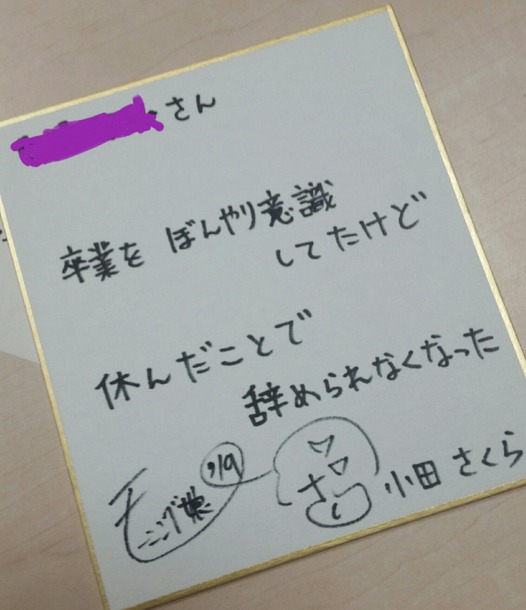 さん
卒業を ぼんやり意識
してたけど
休んだことで
辞められなくなった
モーニング娘
'19
小田 さくら